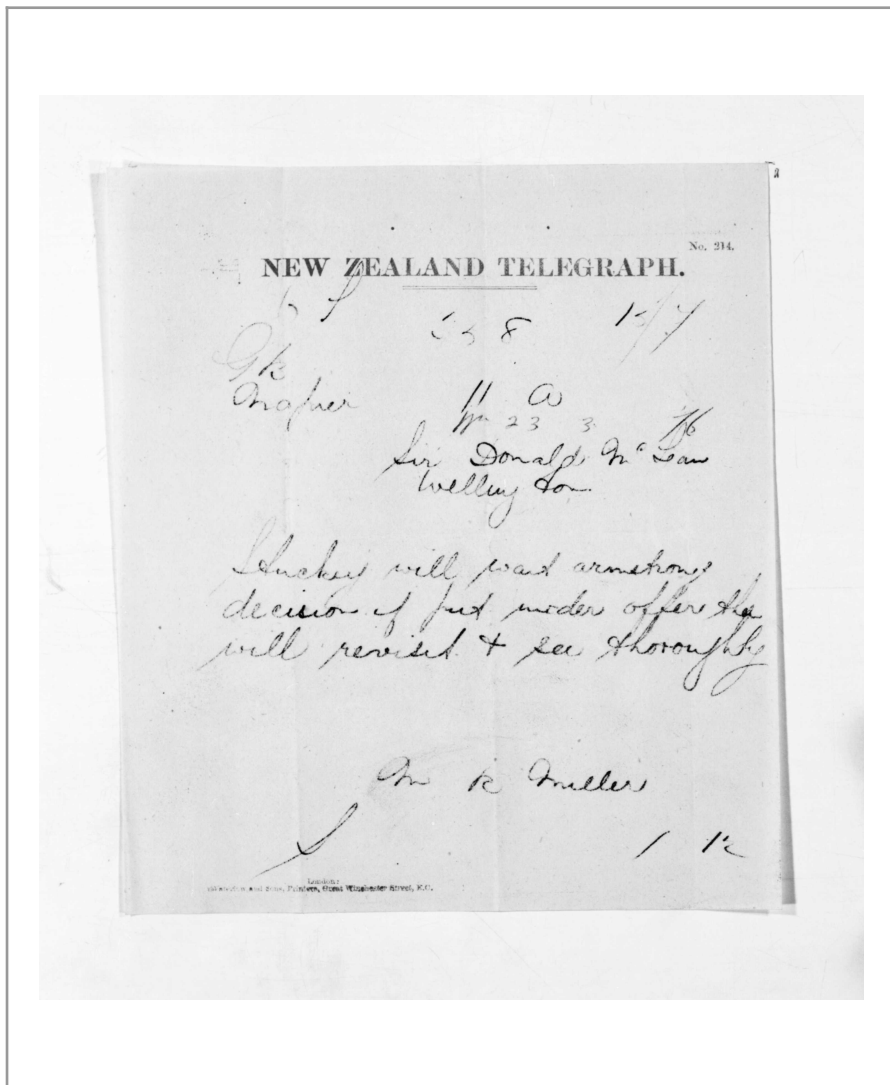 No. 214.
NEW ZEALAND TELEGRAPH.
Napier
11 a
23 3 76
Sir Donald McLean
Wellington
will wait armstrong
decision if put under offer
will revisit & see thoroughly
M R Miller
London:
and Sons, Printers, Great Winchester Street, E.C.